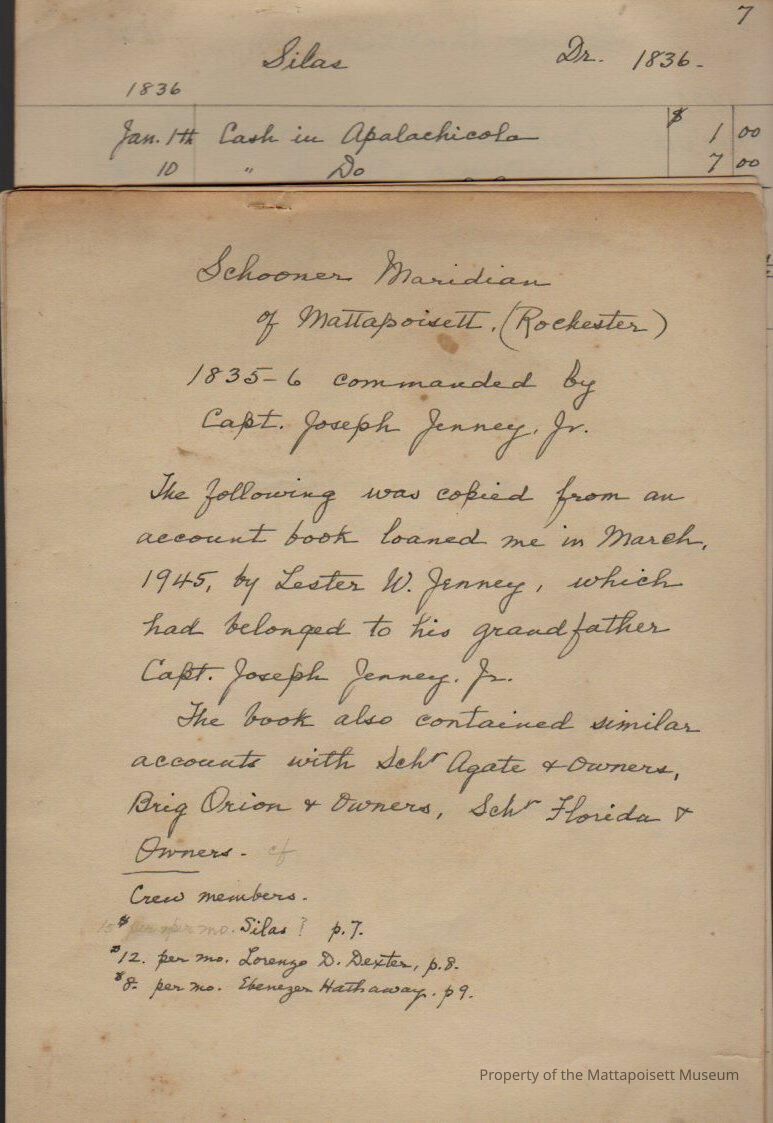 7
Silas Dr. 1836-
1836
$
Jan. 1th Cash in Apalachicola 1 00
10 " Do 7 00
Schooner Maridian
of Mattapoisett. (Rochester)
1835-6 commanded by
Capt. Joseph Jenney, Jr.
The following was copied from an
account book loaned me in March,
1945, by Lester W. Jenney, which
had belonged to his grandfather
Capt. Joseph Jenney. Jr.
The book also contained similar
accounts with Schr Agate & Owners,
Brig Orion & Owners, Schr Florida &
Owners. cf
Crew members.
10$ per mo. Silas ? p.7.
$12. per mo. Lorenzo D. Dexter, p.8.
$8. per mo. Ebenezer Hathaway. p9.
Property of the Mattapoisett Museum